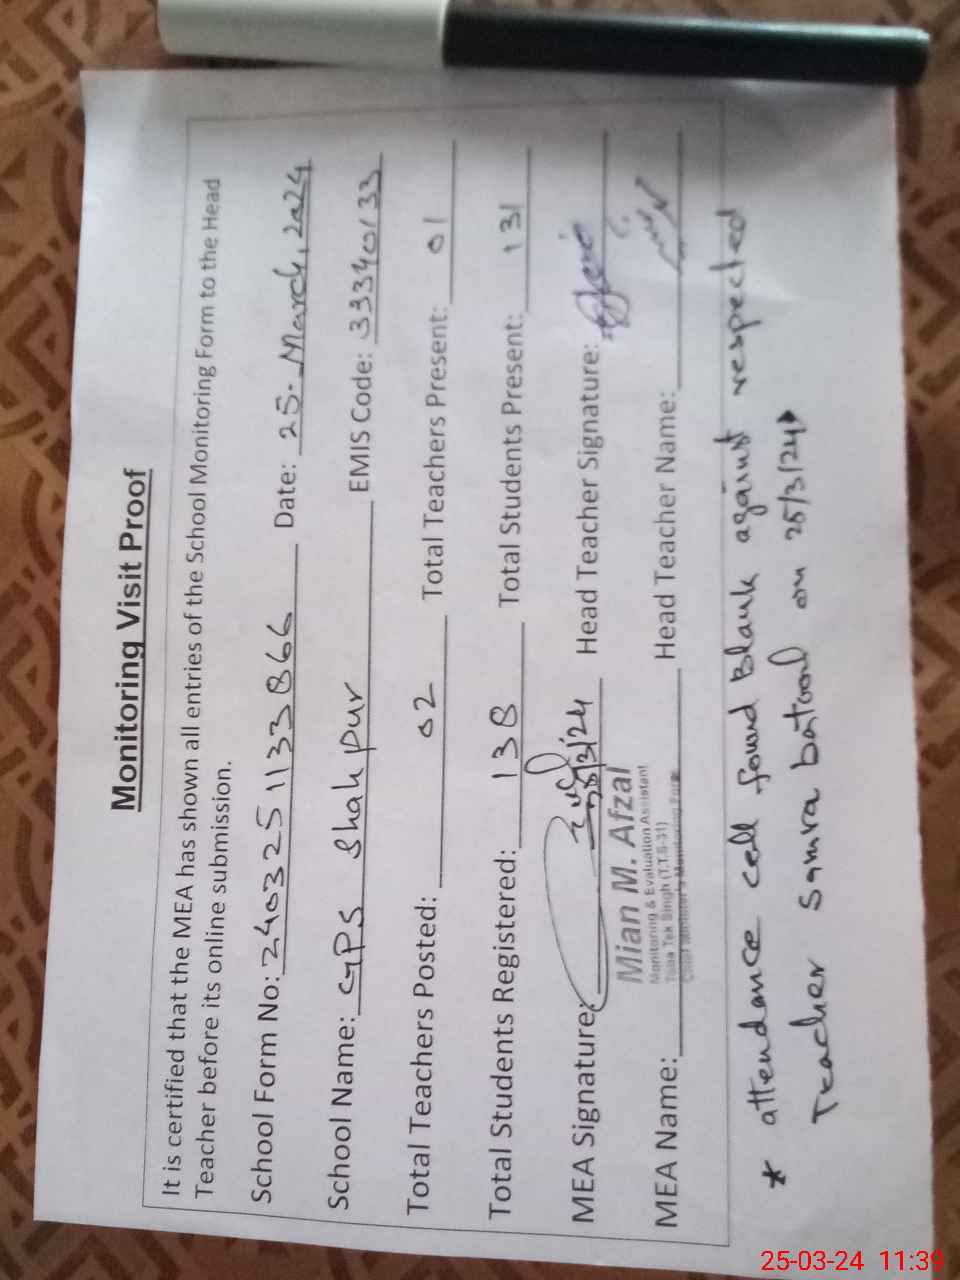 Monitoring Visit Proof
It is certified that the MEA has shown all entries of the School Monitoring Form to the Head
Teacher before its online submission.
School Form No: 240325 1133866 Date: 25-March, 2024
School Name: GPS Shah pur EMIS Code: 33340133
Total Teachers Posted: 02 Total Teachers Present: 01
Total Students Registered: 138 Total Students Present: 131
MEA Signature: 25/3/24 Head Teacher Signature:
Mian M. Afzal
Monitoring & Evaluation Assistant
Toba Tek Singh (T.T.S-31)
Chief Minister's Monitoring Force
MEA Name: Head Teacher Name:
* attendance cell found Blank against respected
Teacher Samra batool on 25/3/24
25-03-24 11:39